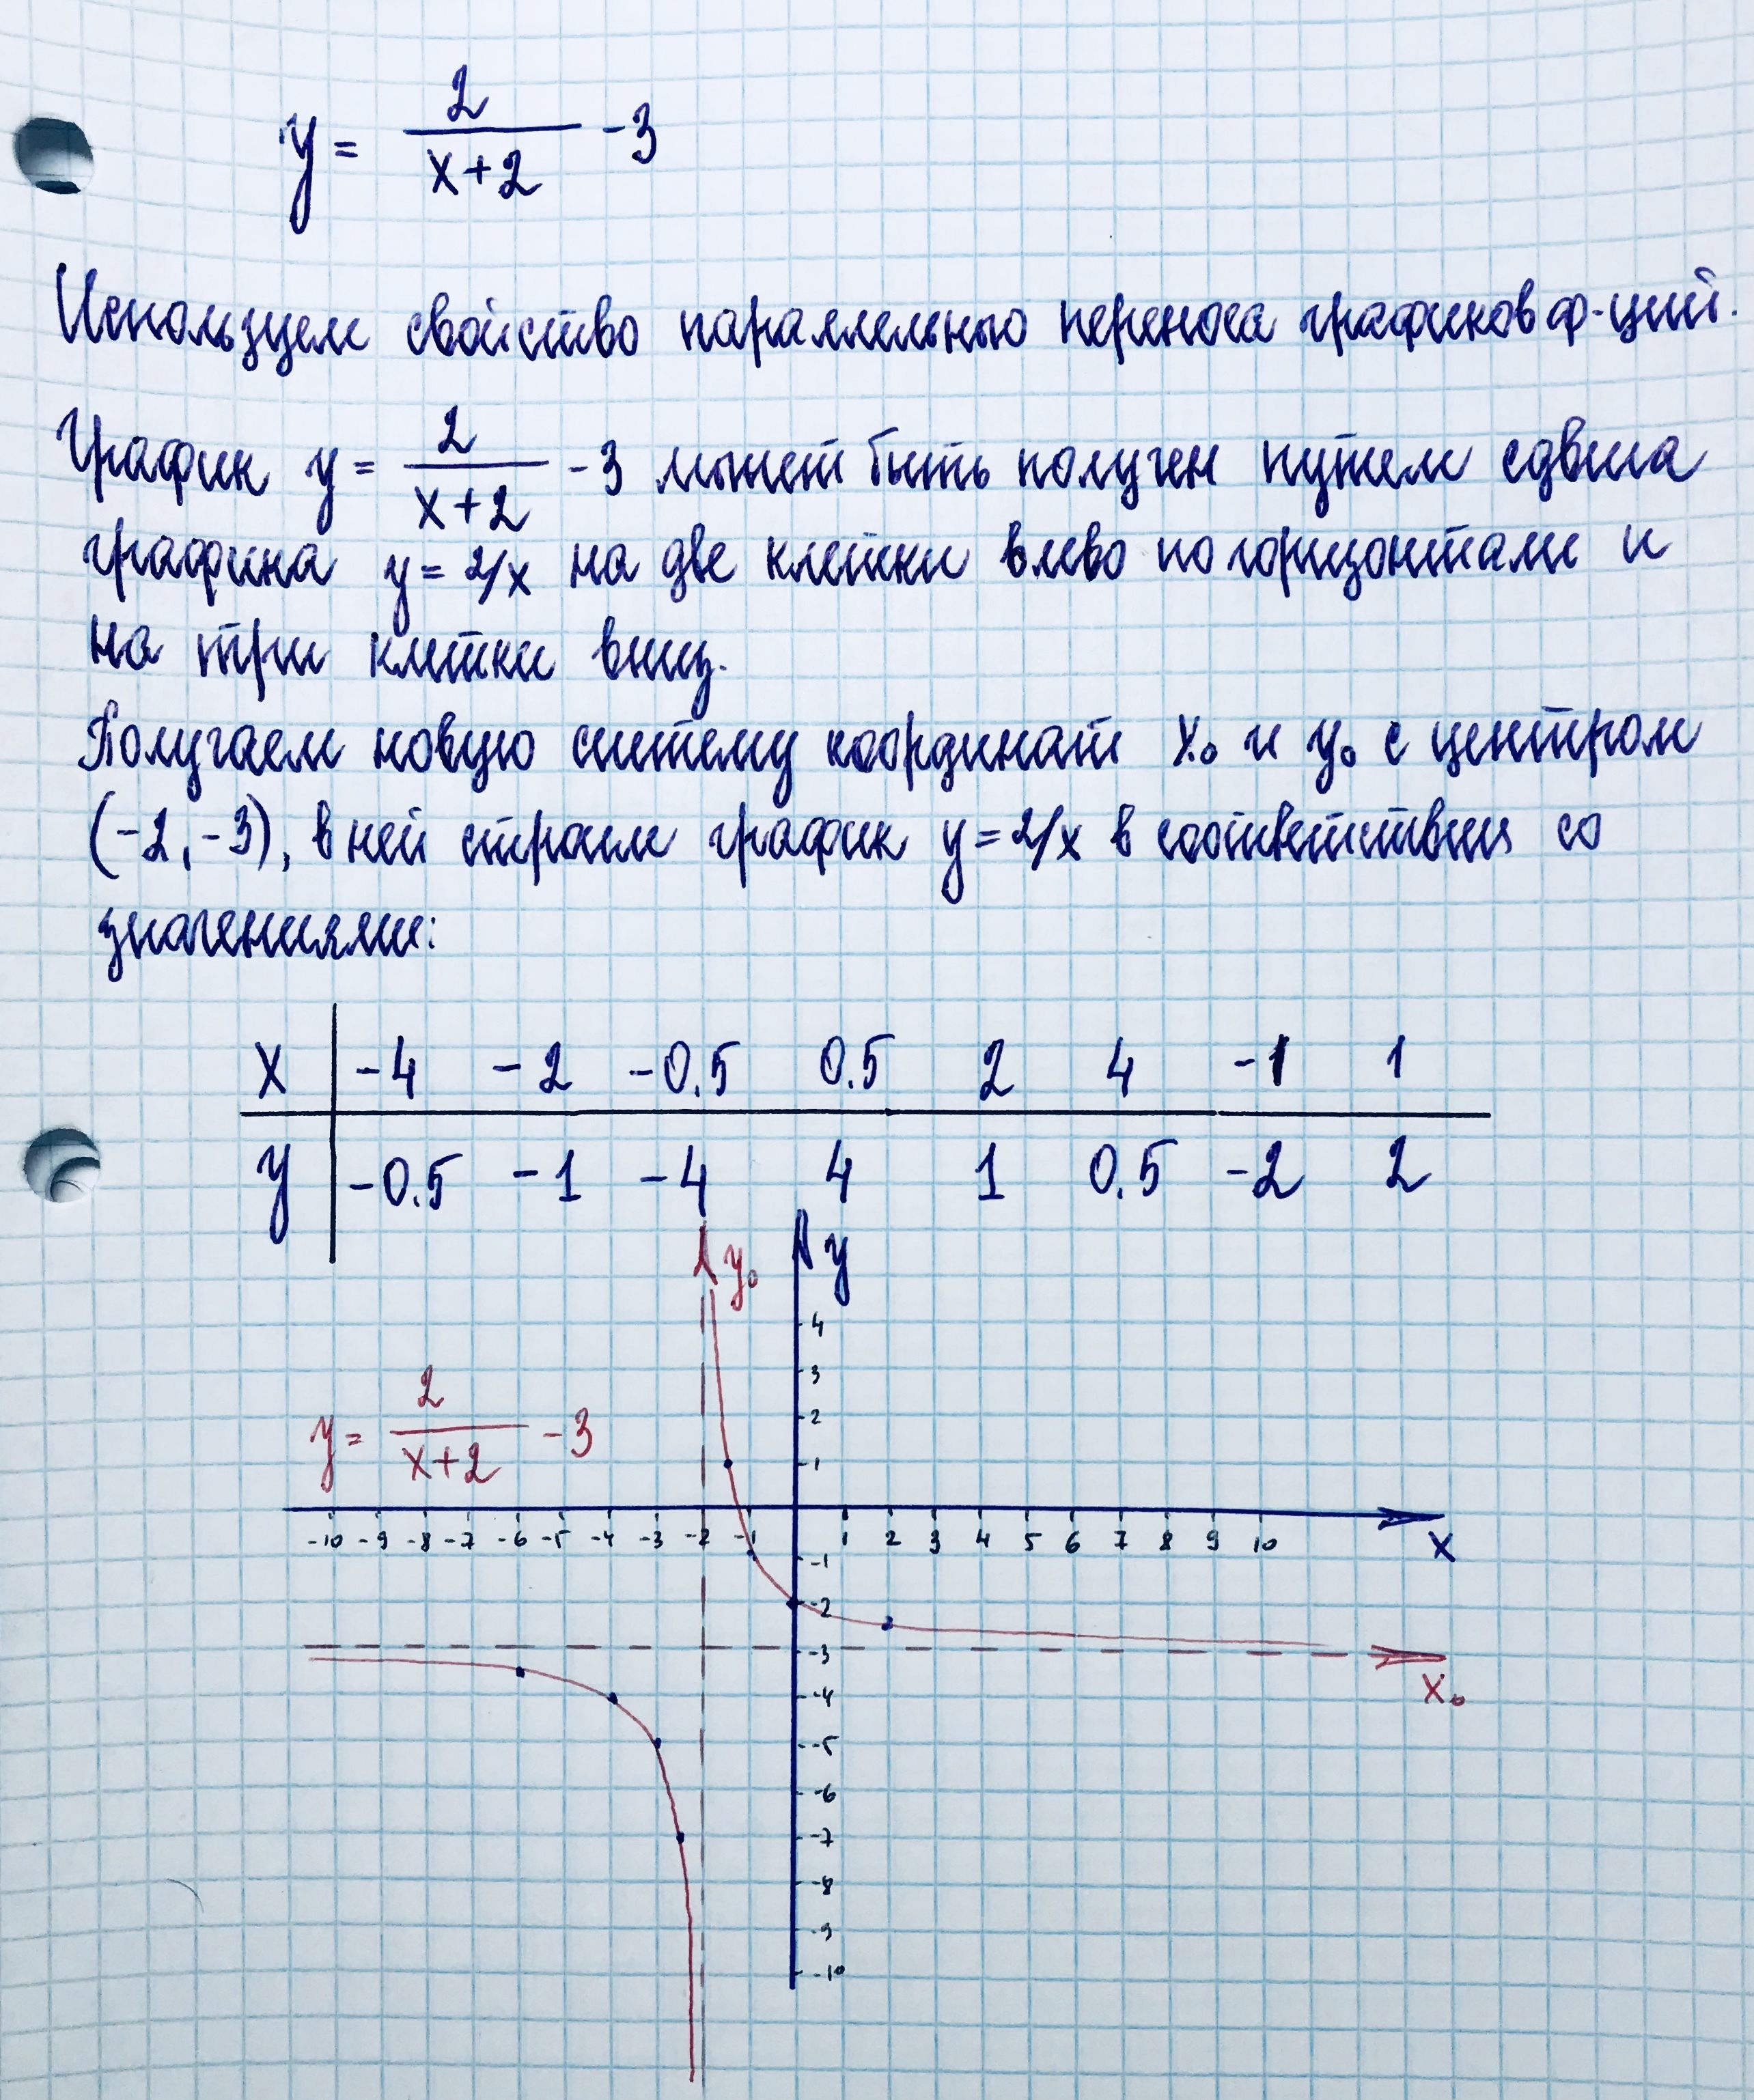 y = 2/(x+2) - 3
Используем свойство параллельного переноса графиков ф-ций.
График y = 2/(x+2) - 3 может быть получен путем сдвига
графика y = 2/x на две клетки влево по горизонтали и
на три клетки вниз.
Получаем новую систему координат x₀ и y₀ с центром
(-2, -3), в ней строим график y = 2/x в соответствии со
значениями:
x | -4 -2 -0.5 0.5 2 4 -1 1
y | -0.5 -1 -4 4 1 0.5 -2 2
y₀ y
4
3
y = 2/(x+2) - 3
2
1
-10 -9 -8 -7 -6 -5 -4 -3 -2 -1 1 2 3 4 5 6 7 8 9 10 x
-1
-2
-3
x₀
-4
-5
-6
-7
-8
-9
-10